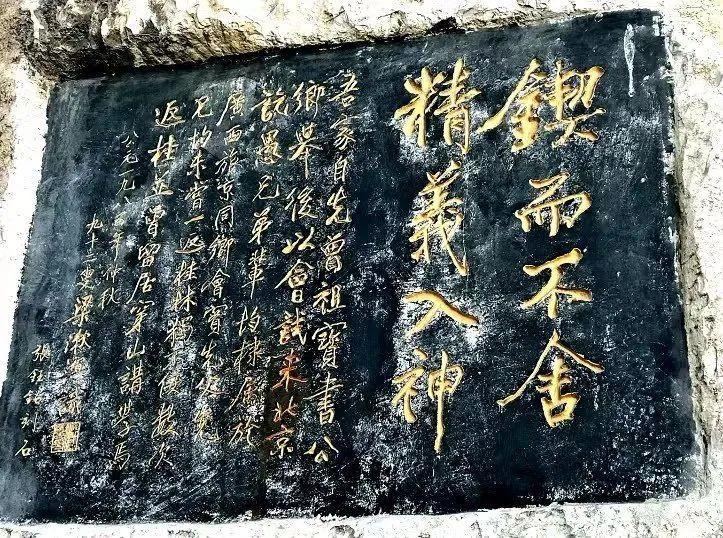 鍥而不舍
精義入神
吾家自先曾祖寶書公
鄉舉後以會試來北京
訖愚兄弟輩均隸屬於
廣西旅京同鄉會實先
兄均未嘗一返桂林獨僕數次
返桂並曾留居穿山講學焉
公元一九八年仲秋
九十二叟梁漱溟識
張鈺刻石